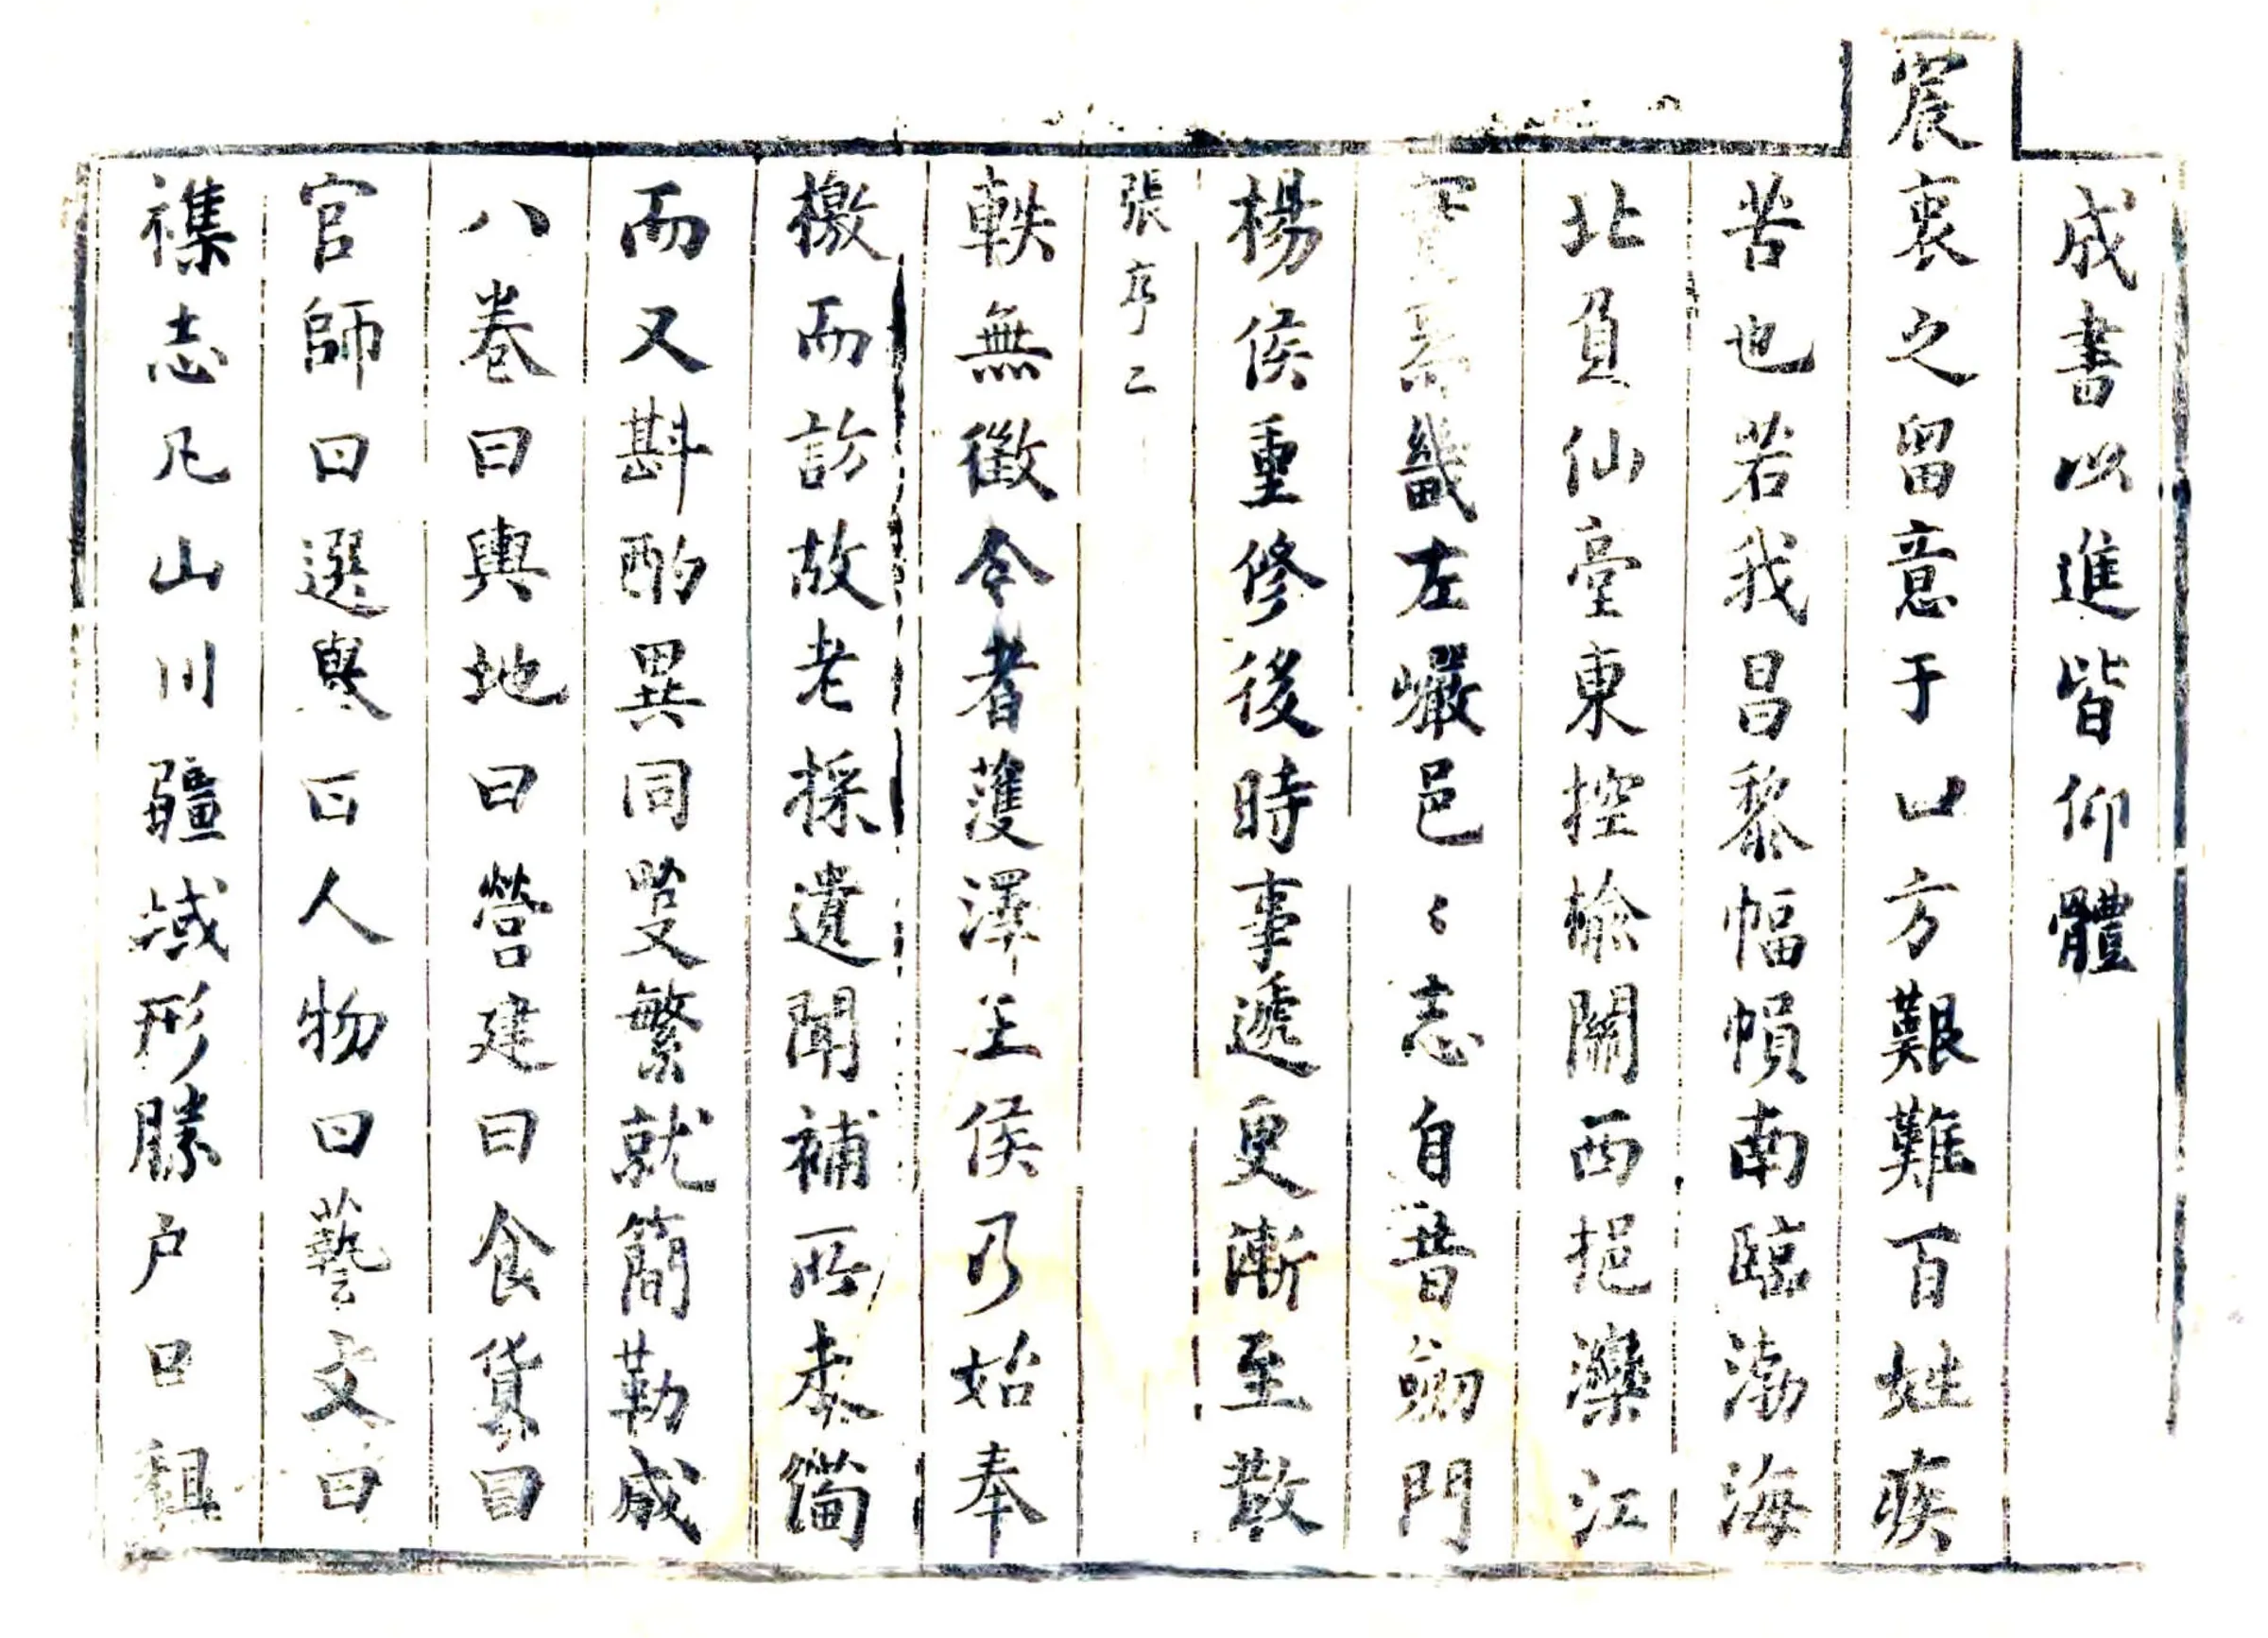 成書以進皆仰體
宸衷之留意于凵方艱難百姓疾
苦也若我昌黎幅幀南臨渤海
北負仙臺東控榆關西挹灤江
畿左巖邑〻志自昔劬門
楊侯重修後時事遞更漸至散
張序二
軼無徵令者蒦澤王侯乃始奉
檄而訪故老採遺聞補所未備
而又斟酌異同叟繁就簡勒成
八卷曰輿地曰營建曰食貨曰
官師曰選舉曰人物曰藝文曰
襍志凡山川疆域形勝户口租